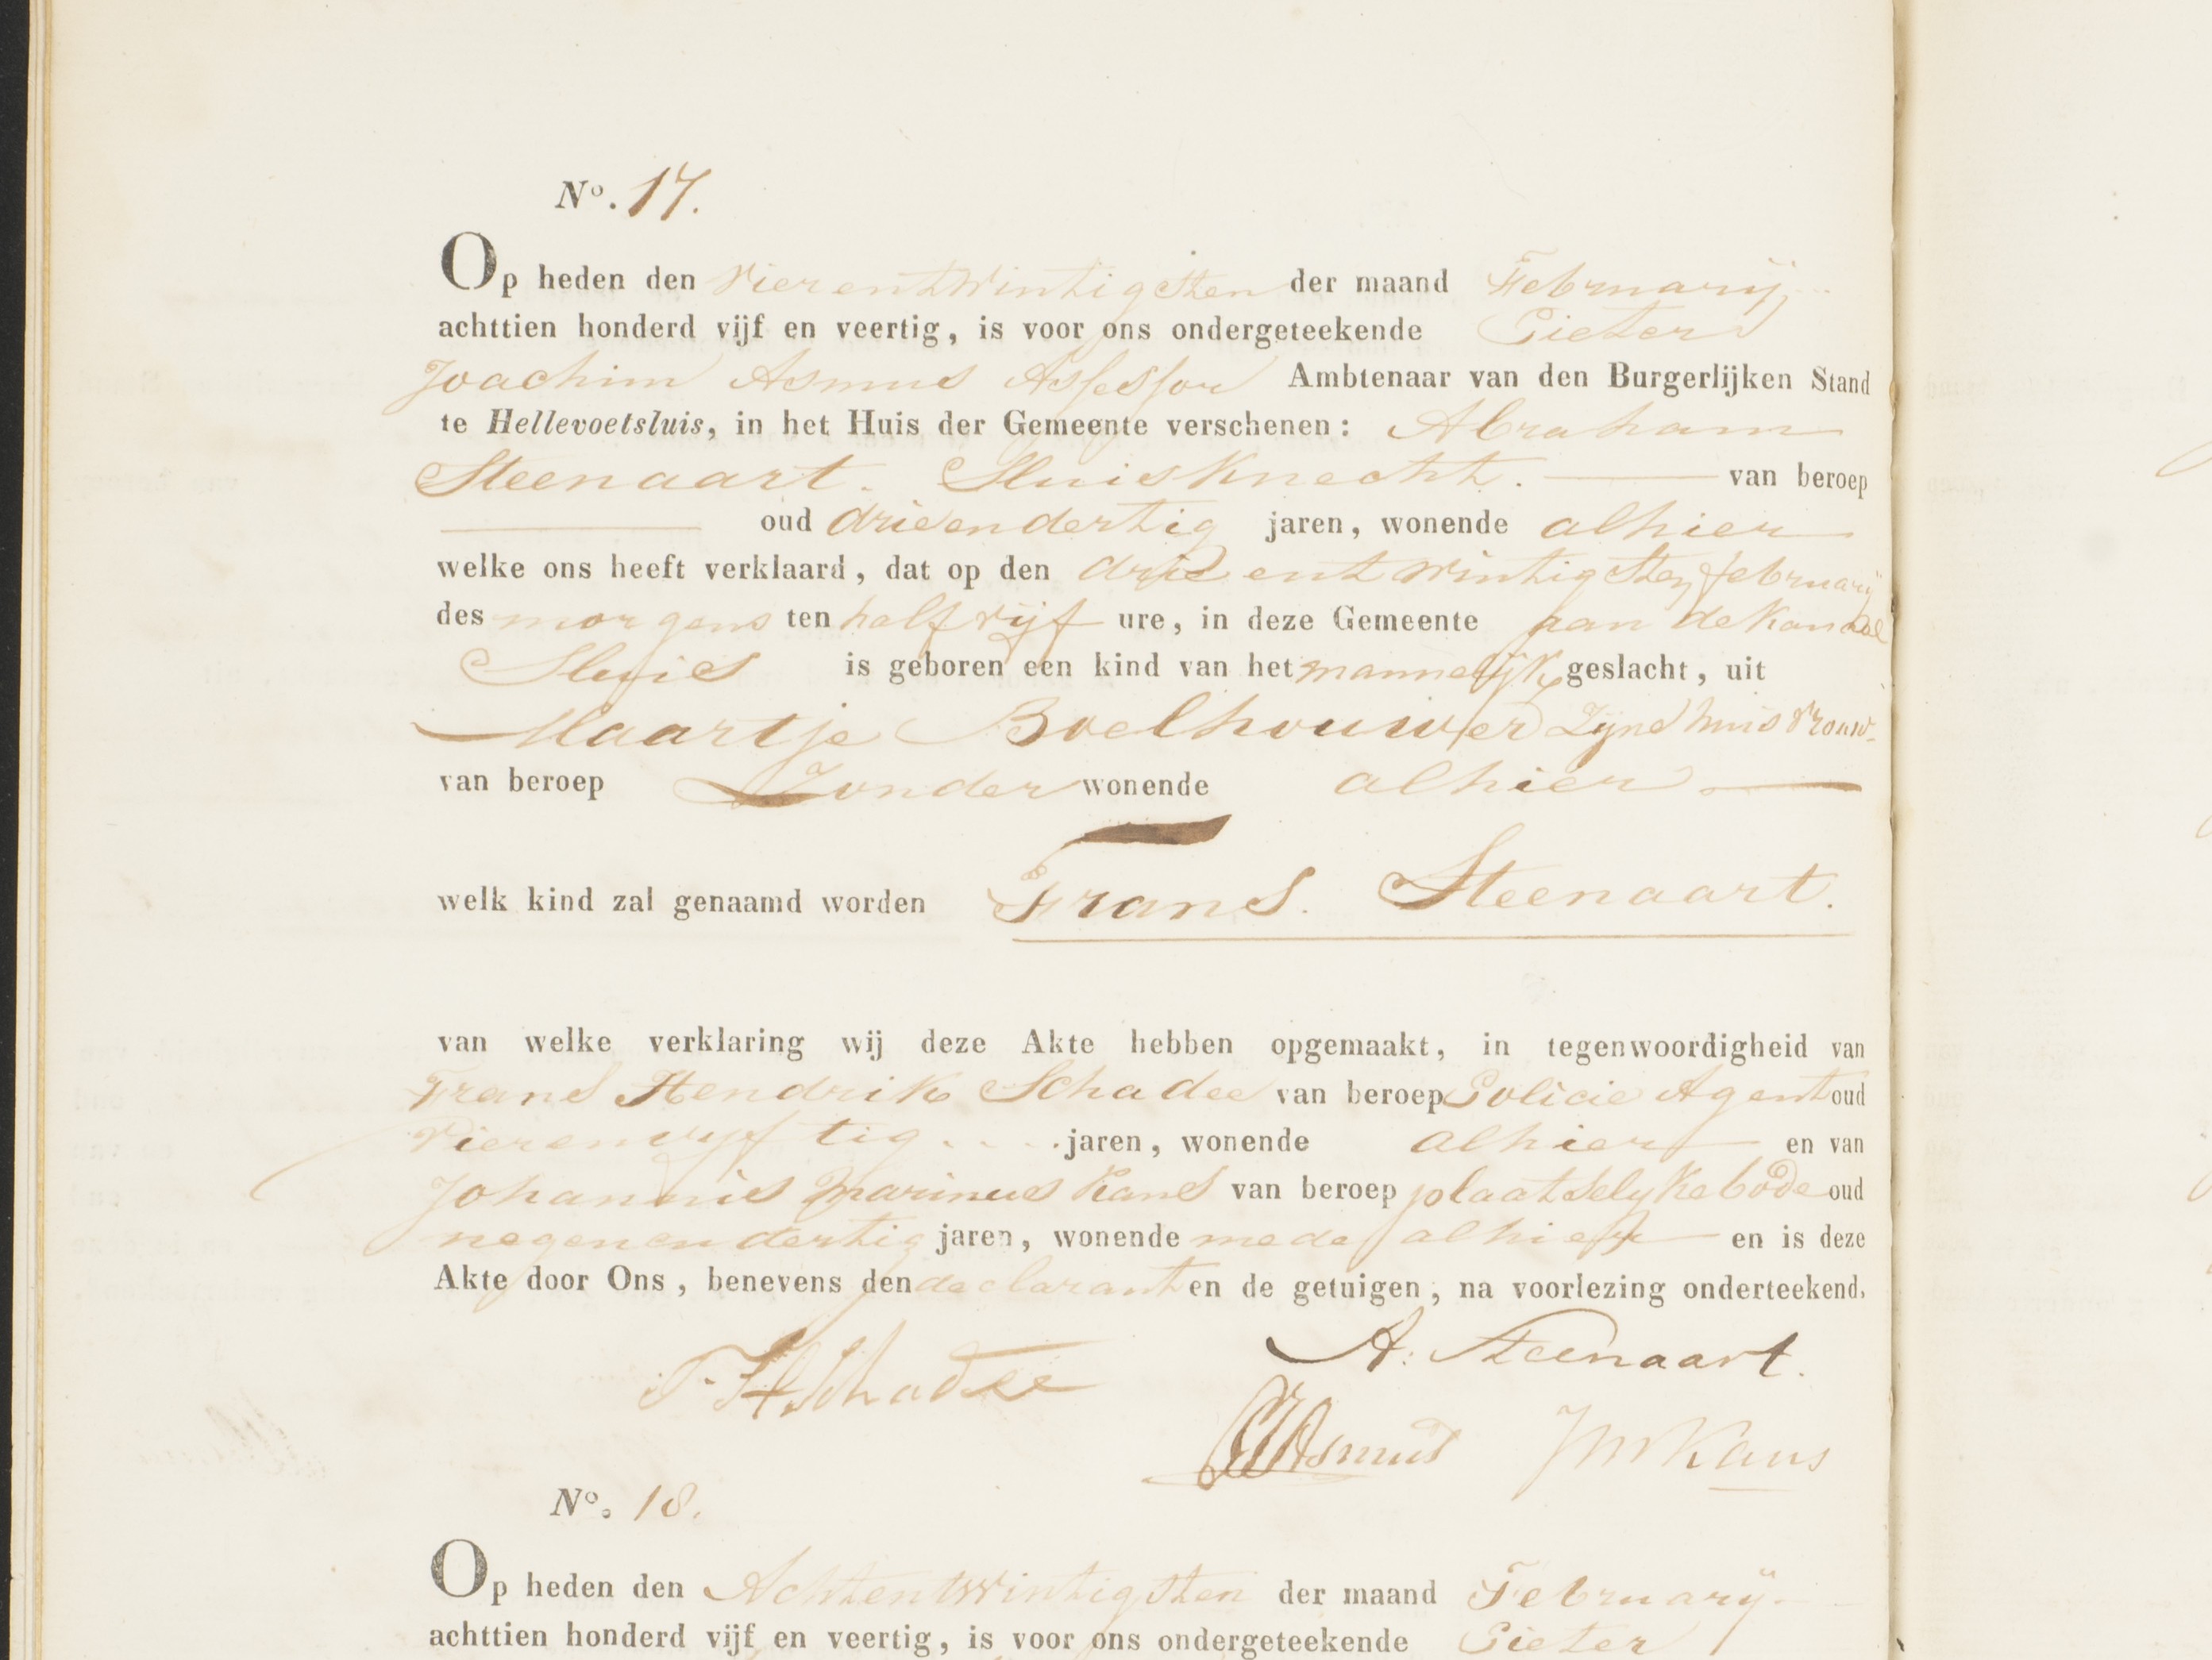 Nº. 17.
Op heden den vierentwintigsten der maand Februarij
achttien honderd vijf en veertig, is voor ons ondergeteekende Pieter
Joachim Asmus Assessor Ambtenaar van den Burgerlijken Stand
te Hellevoetsluis, in het Huis der Gemeente verschenen: Abraham
Steenaart. Sluisknecht. van beroep
oud drieendertig jaren, wonende alhier
welke ons heeft verklaard, dat op den drieentwintigsten february
des morgens ten half vijf ure, in deze Gemeente aan de Kanaal
Sluis is geboren een kind van het mannelijk geslacht, uit
Maartje Boelhouwer Zijne huisvrouw
van beroep Zonder wonende alhier
welk kind zal genaamd worden Frans. Steenaart.
van welke verklaring wij deze Akte hebben opgemaakt, in tegenwoordigheid van
Frans Hendrik Schadee van beroep Policie Agent oud
vierenvyftig jaren, wonende alhier en van
Johannis Marinus Kans van beroep plaatselyke bode oud
negenendertig jaren, wonende mede alhier en is deze
Akte door Ons, benevens den declarant en de getuigen, na voorlezing onderteekend.
F. H. Schadee A. Steenaart.
PJAsmus JM Kans
Nº. 18.
Op heden den Achtentwintigsten der maand February
achttien honderd vijf en veertig, is voor ons ondergeteekende Pieter